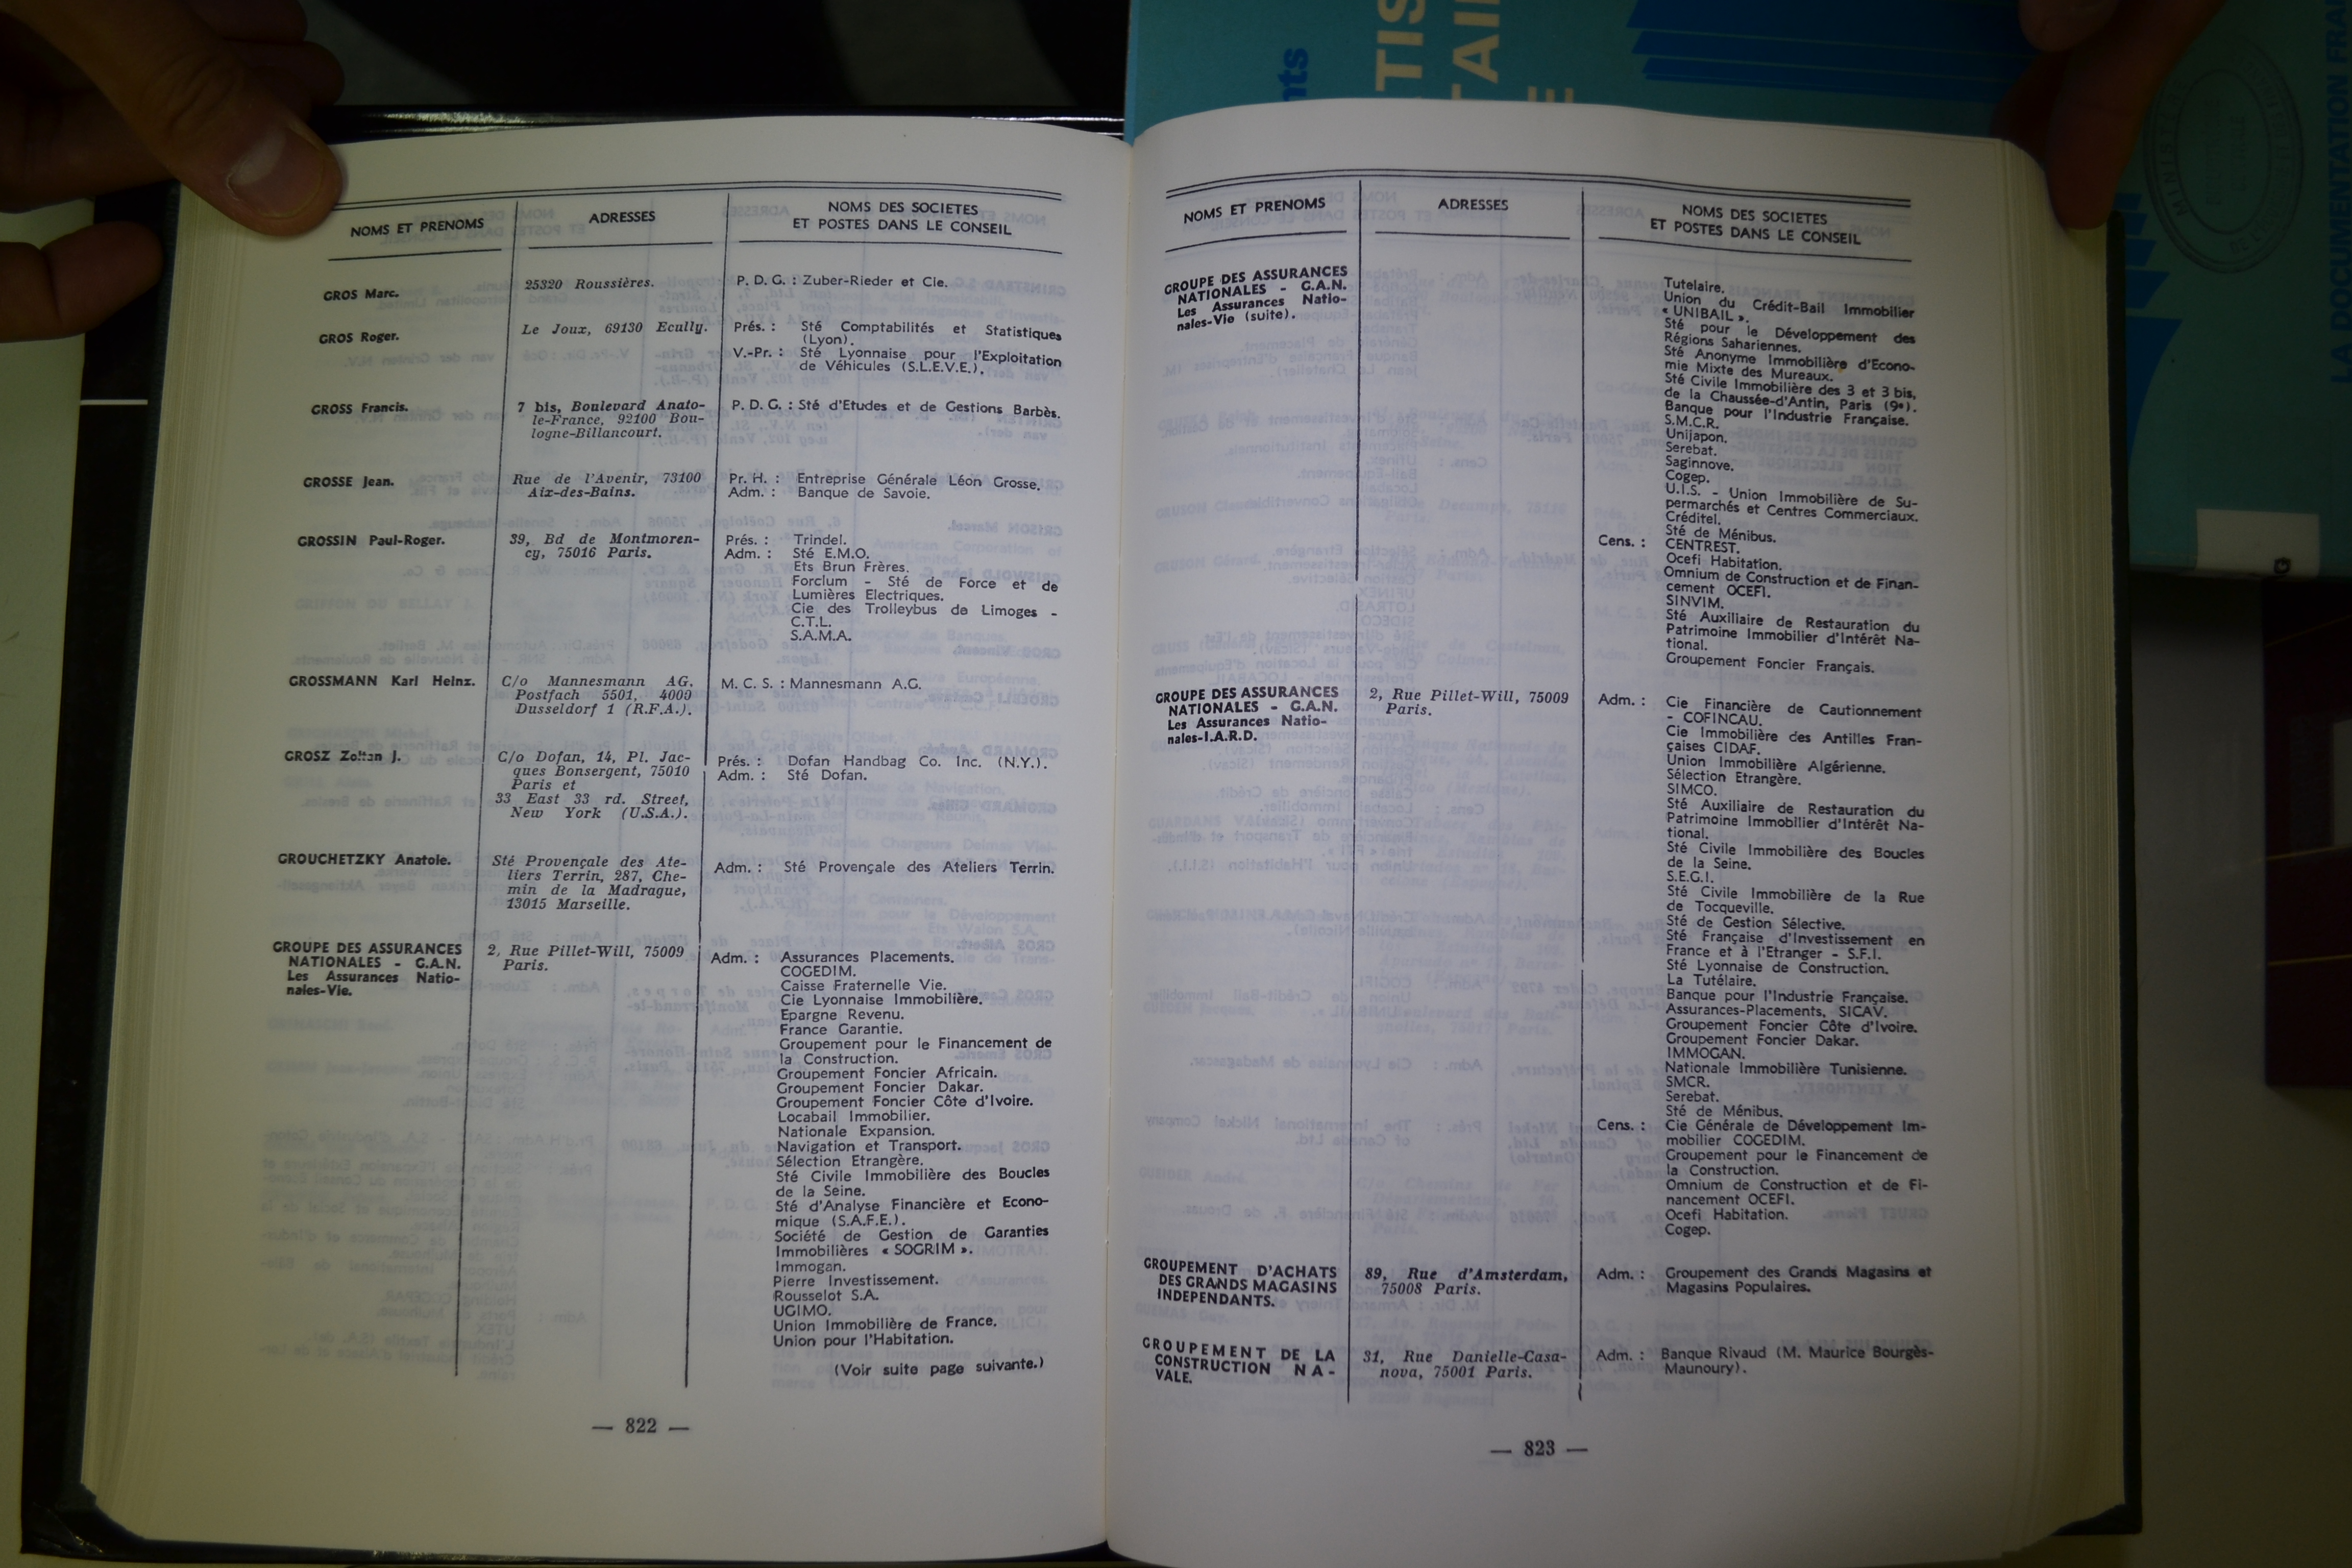 NOMS ET PRENOMS
ADRESSES
NOMS DES SOCIETES
ET POSTES DANS LE CONSEIL
GROS Marc.
25320 Roussières.
P. D. G. : Zuber-Rieder et Cie.
GROS Roger.
Le Joux, 69130 Ecully.
Prés. : Sté Comptabilités et Statistiques
(Lyon).
V.-Pr. : Sté Lyonnaise pour l'Exploitation
de Véhicules (S.L.E.V.E.).
GROSS Francis.
7 bis, Boulevard Anato-
le-France, 92100 Bou-
logne-Billancourt.
P. D. G. : Sté d'Etudes et de Gestions Barbès.
GROSSE Jean.
Rue de l'Avenir, 73100
Aix-des-Bains.
Pr. H. : Entreprise Générale Léon Grosse.
Adm. : Banque de Savoie.
GROSSIN Paul-Roger.
39, Bd de Montmoren-
cy, 75016 Paris.
Prés. : Trindel.
Adm. : Sté E.M.O.
Ets Brun Frères.
Forclum - Sté de Force et de
Lumières Electriques.
Cie des Trolleybus de Limoges -
C.T.L.
S.A.M.A.
GROSSMANN Karl Heinz.
C/o Mannesmann AG,
Postfach 5501, 4000
Dusseldorf 1 (R.F.A.).
M. C. S. : Mannesmann A.G.
GROSZ Zoltan J.
C/o Dofan, 14, Pl. Jac-
ques Bonsergent, 75010
Paris et
33 East 33 rd. Street,
New York (U.S.A.).
Prés. : Dofan Handbag Co. Inc. (N.Y.).
Adm. : Sté Dofan.
GROUCHETZKY Anatole.
Sté Provençale des Ate-
liers Terrin, 287, Che-
min de la Madrague,
13015 Marseille.
Adm. : Sté Provençale des Ateliers Terrin.
GROUPE DES ASSURANCES
NATIONALES - G.A.N.
Les Assurances Natio-
nales-Vie.
2, Rue Pillet-Will, 75009
Paris.
Adm. : Assurances Placements.
COGEDIM.
Caisse Fraternelle Vie.
Cie Lyonnaise Immobilière.
Epargne Revenu.
France Garantie.
Groupement pour le Financement de
la Construction.
Groupement Foncier Africain.
Groupement Foncier Dakar.
Groupement Foncier Côte d'Ivoire.
Locabail Immobilier.
Nationale Expansion.
Navigation et Transport.
Sélection Etrangère.
Sté Civile Immobilière des Boucles
de la Seine.
Sté d'Analyse Financière et Econo-
mique (S.A.F.E.).
Société de Gestion de Garanties
Immobilières « SOGRIM ».
Immogan.
Pierre Investissement.
Rousselot S.A.
UGIMO.
Union Immobilière de France.
Union pour l'Habitation.
(Voir suite page suivante.)
— 822 —
NOMS ET PRENOMS
ADRESSES
NOMS DES SOCIETES
ET POSTES DANS LE CONSEIL
GROUPE DES ASSURANCES
NATIONALES - G.A.N.
Les Assurances Natio-
nales-Vie (suite).
Tutelaire.
Union du Crédit-Bail Immobilier
« UNIBAIL ».
Sté pour le Développement des
Régions Sahariennes.
Sté Anonyme Immobilière d'Econo-
mie Mixte des Mureaux.
Sté Civile Immobilière des 3 et 3 bis,
de la Chaussée-d'Antin, Paris (9e).
Banque pour l'Industrie Française.
S.M.C.R.
Unijapon.
Serebat.
Saginnove.
Cogep.
U.I.S. - Union Immobilière de Su-
permarchés et Centres Commerciaux.
Créditel.
Sté de Ménibus.
Cens. : CENTREST.
Ocefi Habitation.
Omnium de Construction et de Finan-
cement OCEFI.
SINVIM.
Sté Auxiliaire de Restauration du
Patrimoine Immobilier d'Intérêt Na-
tional.
Groupement Foncier Français.
GROUPE DES ASSURANCES
NATIONALES - G.A.N.
Les Assurances Natio-
nales-I.A.R.D.
2, Rue Pillet-Will, 75009
Paris.
Adm. : Cie Financière de Cautionnement
- COFINCAU.
Cie Immobilière des Antilles Fran-
çaises CIDAF.
Union Immobilière Algérienne.
Sélection Etrangère.
SIMCO.
Sté Auxiliaire de Restauration du
Patrimoine Immobilier d'Intérêt Na-
tional.
Sté Civile Immobilière des Boucles
de la Seine.
S.E.G.I.
Sté Civile Immobilière de la Rue
de Tocqueville.
Sté de Gestion Sélective.
Sté Française d'Investissement en
France et à l'Etranger - S.F.I.
Sté Lyonnaise de Construction.
La Tutélaire.
Banque pour l'Industrie Française.
Assurances-Placements, SICAV.
Groupement Foncier Côte d'Ivoire.
Groupement Foncier Dakar.
IMMOGAN.
Nationale Immobilière Tunisienne.
SMCR.
Serebat.
Sté de Ménibus.
Cens. : Cie Générale de Développement Im-
mobilier COGEDIM.
Groupement pour le Financement de
la Construction.
Omnium de Construction et de Fi-
nancement OCEFI.
Ocefi Habitation.
Cogep.
GROUPEMENT D'ACHATS
DES GRANDS MAGASINS
INDEPENDANTS.
89, Rue d'Amsterdam,
75008 Paris.
Adm. : Groupement des Grands Magasins et
Magasins Populaires.
GROUPEMENT DE LA
CONSTRUCTION NA-
VALE.
31, Rue Danielle-Casa-
nova, 75001 Paris.
Adm. : Banque Rivaud (M. Maurice Bourgès-
Maunoury).
— 823 —
LA DOCUMENTATION FRA